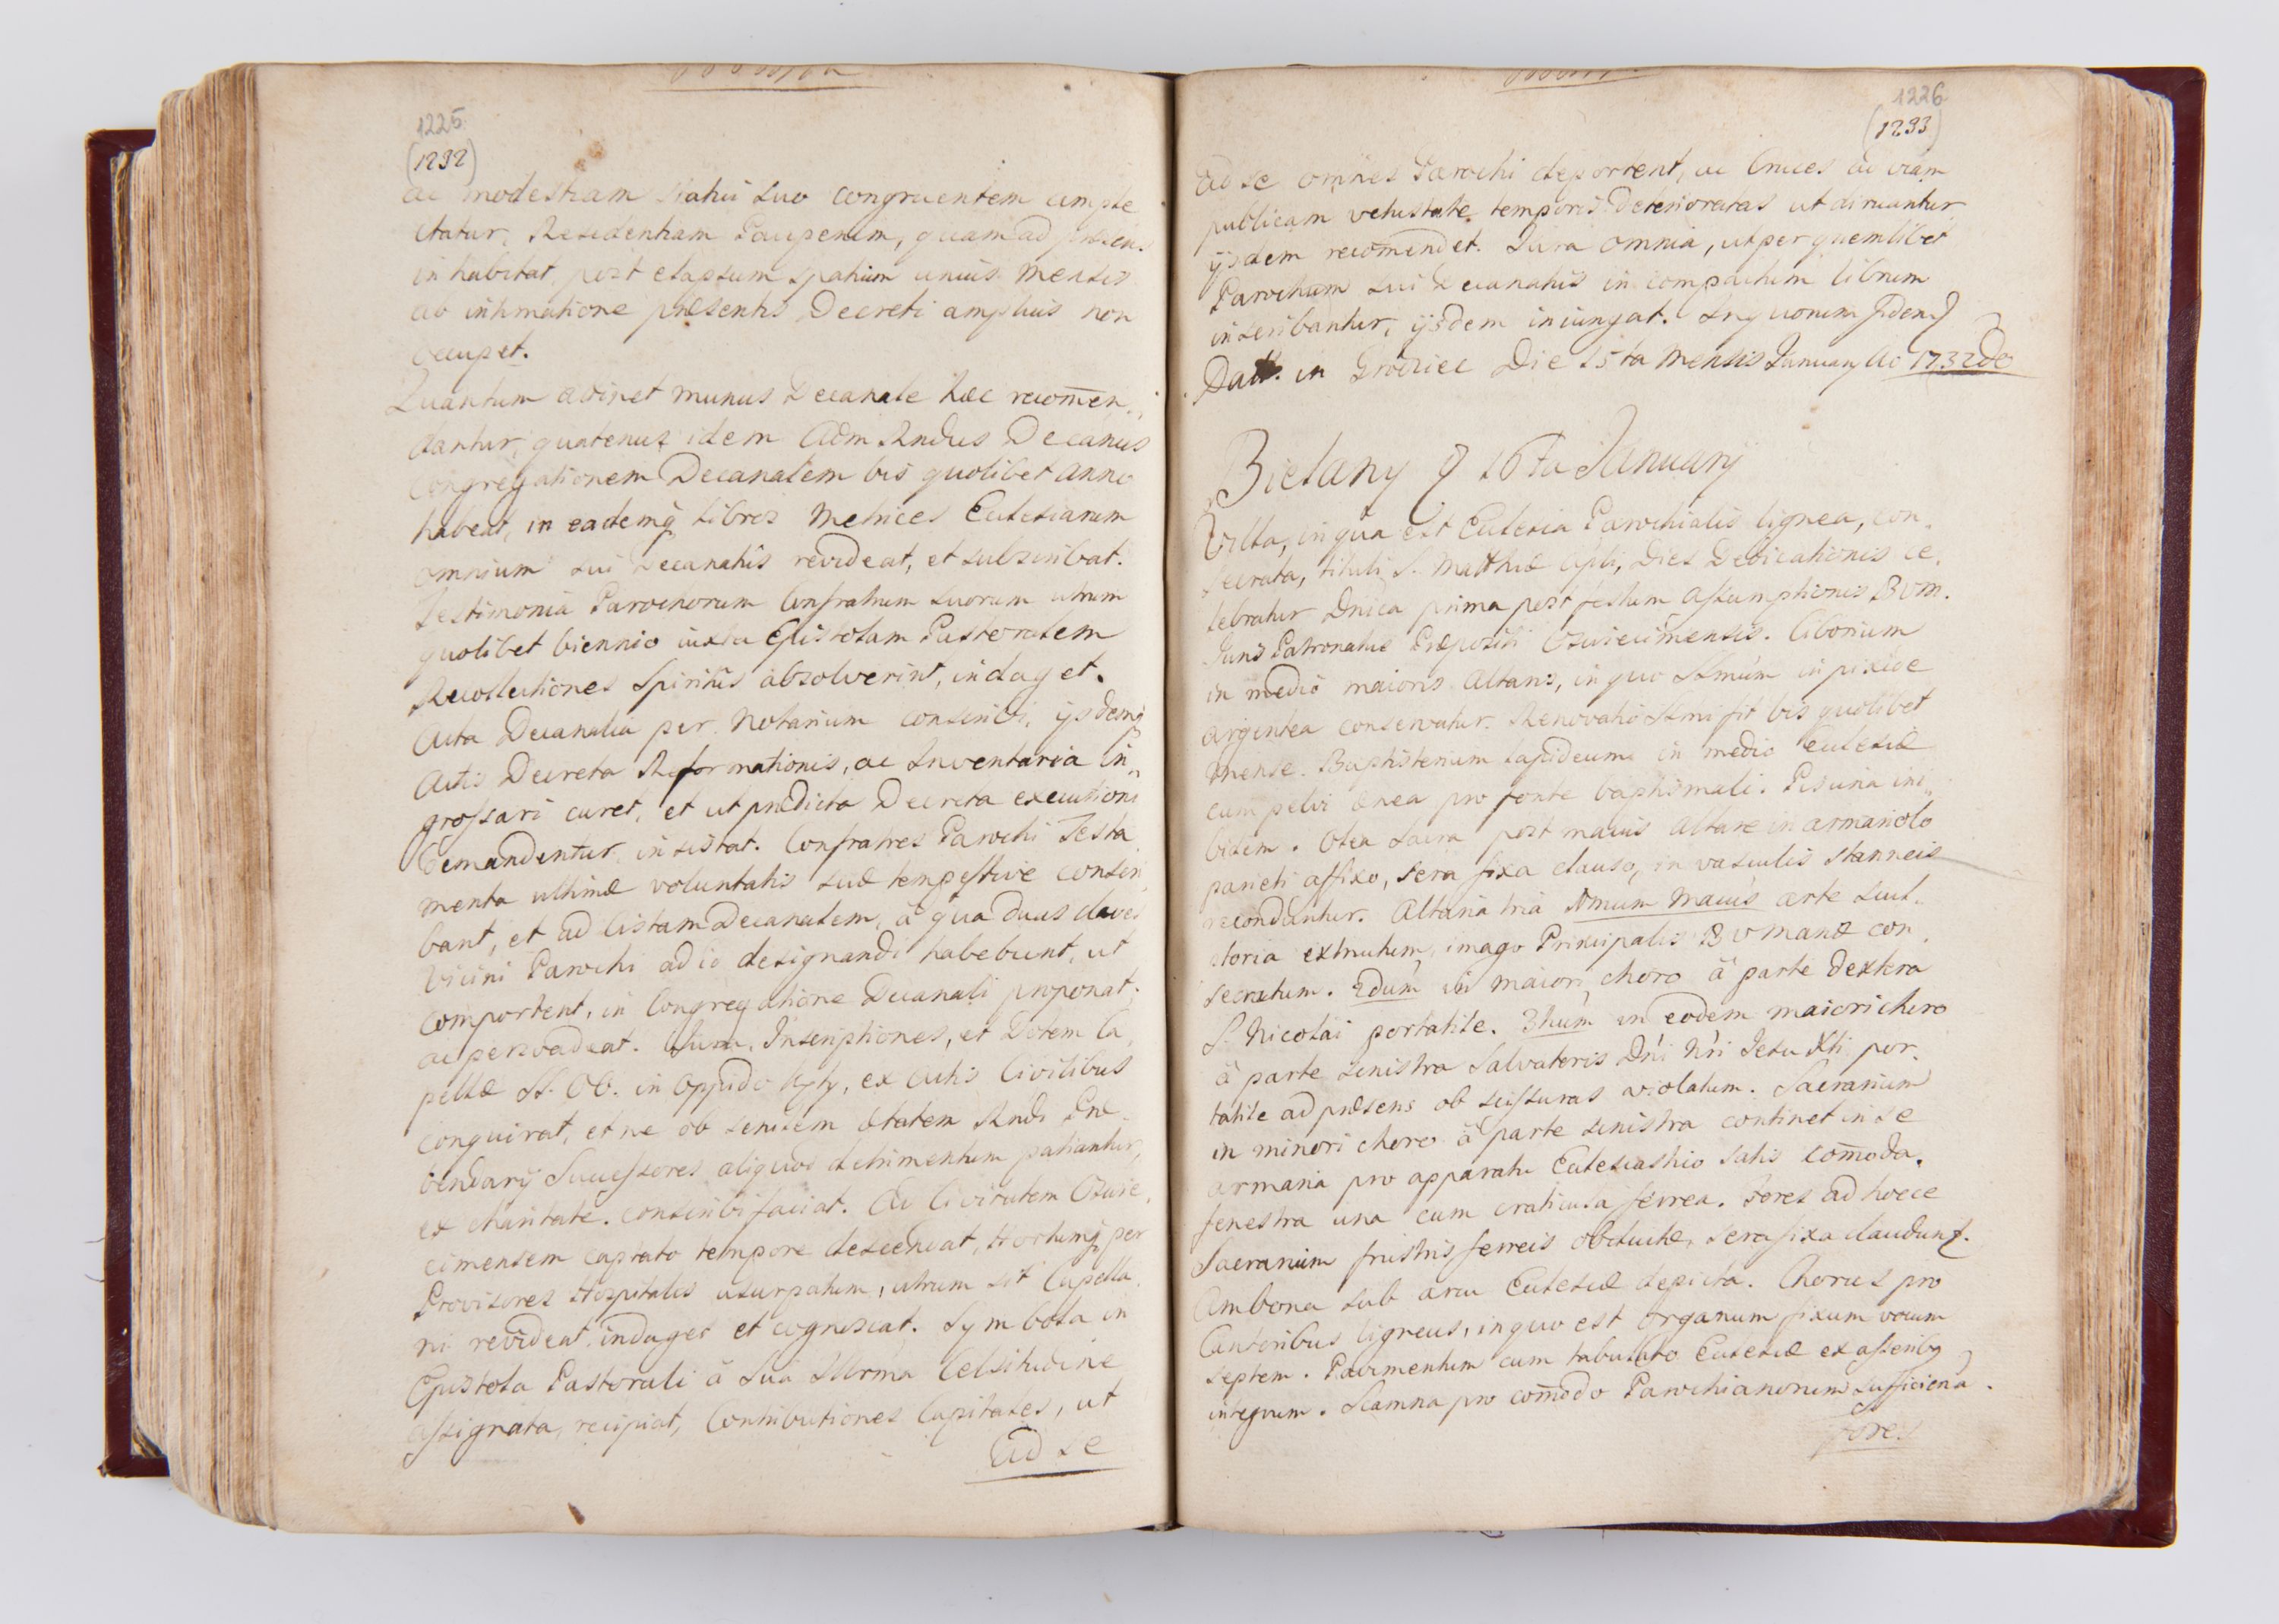 1225
(1232)
ac modestiam statui suo congruentem ample
ctatur, Residentiam Pauperum, quam ad præsens
inhabitat, post elapsum spatium unius mensis
ab intimatione præsentis Decreti amplius non
occupet.
Quantum attinet munus Decanale hæc recom̄en„
dantur, quatenus idem Adm Rndus Decanus
Congregationem Decanalem bis quolibet anno
habeat, in eademq̨ libros Metrices Ecclesiarum
omnium sui Decanatûs revideat, et subscribat.
Testimonia Parochorum Confratrum suorum utrum
quolibet biennio iuxta Epistolam Pastoralem
Recollectiones Spiritûs absolverint, indaget.
Acta Decanalia per Notarium conscribi, ijsdemq̨
Actis Decreta Reformationis, ac Inventaria in„
grossari curet, et ut prædicta Decreta executioni
demandentur, insistat. Confratres Parochi Testa
menta ultimæ voluntatis suæ tempestive conscri
bant, et ad Cistam Decanalem, â qua duas claves
Vicini Parochi ad id designandi habebunt, ut
comportent, in Congregatione Decanali proponat,
ac persvadeat. Iura, Inscriptiones, et Dotem Ca„
pellæ SS. OO. in Oppido Kęty, ex Actis Civilibus
conquirat, et ne ob senilem ætatem Rndi Præ„
bendarij Successores aliquod detrimentum patiantur,
ex charitate conscribi faciat. Ad Civitatem Oswie„
cimensem captato tempore descendat, Hortumq̨ per
Provisores Hospitalis usurpatum, utrum sit Capella„
ni revideat, indaget et cognoscat. Symbola in
Epistola Pastorali â Suâ Sserma Celsitudine
assignata, recipiat, Contributiones Capitales, ut
Ad se
1226
(1233)
Ad se omnes Parochi deportent, ac Cruces ad viam
publicam vetustate temporis deterioratas ut diruantur
ijsdem recom̄endet. Iura omnia, ut per quemlibet
Parochum sui Decanatûs in compactum librum
inscribantur, ijsdem iniungat. In quorum fidem
Datt. in Grodziec Die 15ta Mensis January Ao 1732do
Bielany 16ta Januarij
Villa, in qua est Ecclesia Parochialis lignea, con„
secrata, tituli S. Matthiæ Apli, Dies Dedicationis ce„
lebratur Dnica prima post festum Assumptionis BVM.
Iuris Patronatus Præpositi Oswiecimensis. Ciborium
in medio maioris Altaris, in quo SSmum in pixide
argentea conservatur. Renovatio SSmi fit bis quolibet
Mense. Baptisterium lapideum in medio Ecclesiæ
cum pelvi ænea pro fonte baptismali. Piscina ini„
bidem. Olea Sacra post maius Altare in armariolo
parieti affixo, sera fixa clauso, in vasculis stanneis
reconduntur. Altaria tria 1mum Maius arte scul„
ptoria extructum, imago Principalis BVMariæ con„
secratum. 2dum in maiori choro â parte dextera
S. Nicolai portatile. 3tium in eodem maiori choro
â parte sinistra Salvatoris Dni Nri Jesu Xti por„
tatile ad præsens ob scissuras violatum. Sacrarium
in minori choro â parte sinistra continet in se
armaria pro apparatu Ecclesiastico satis com̄oda.
fenestra una cum craticula ferrea. Fores ad hocce
Sacrarium frustris ferreis obductæ, sera fixa clauduntur.
Ambona sub arcu Ecclesiæ depicta. Chorus pro
Cantoribus ligneus, in quo est Organum fixum vocum
septem. Pavimentum cum tabulato Ecclesiæ ex asseribus
integrum. Scamna pro com̄odo Parochianorum sufficientia.
fores